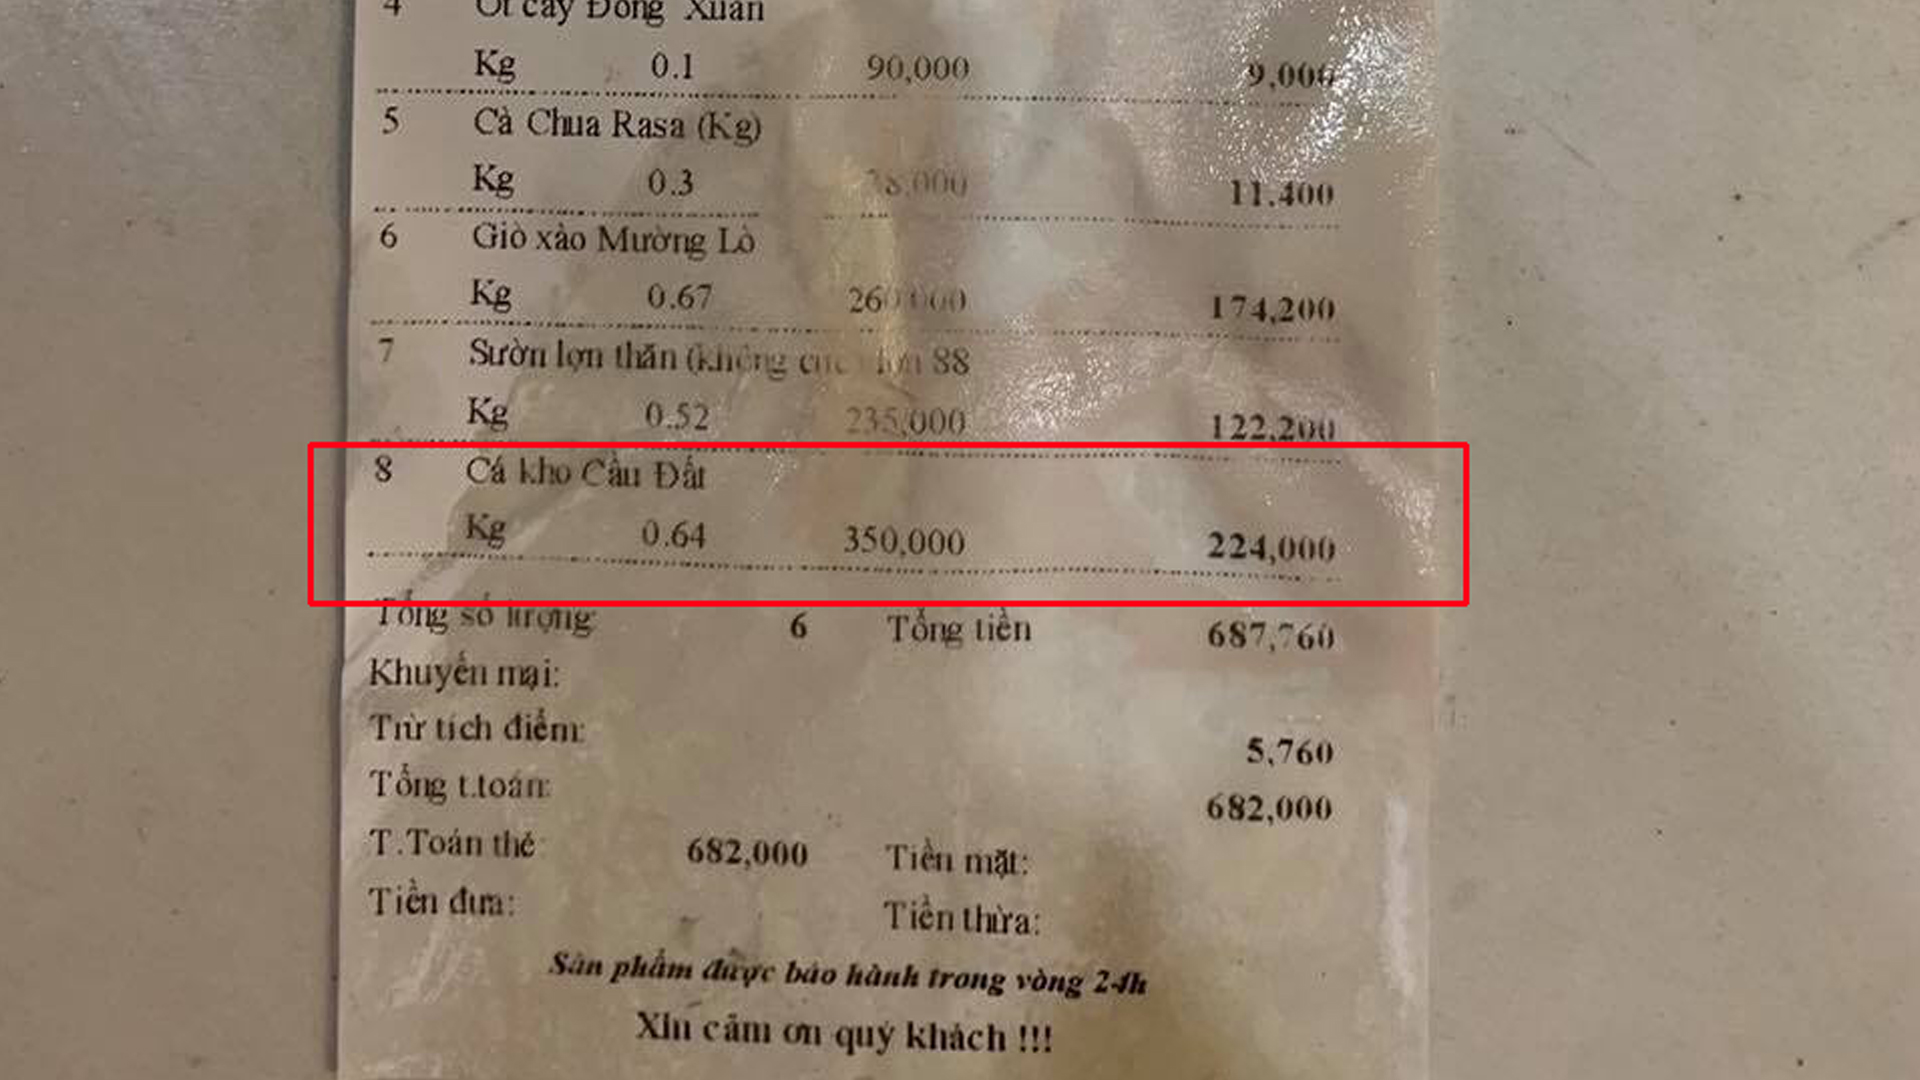 4 Ớt cay Đồng Xuân
Kg 0.1 90,000 9,000
5 Cà Chua Rasa (Kg)
Kg 0.3 38,000 11.400
6 Giò xào Mường Lò
Kg 0.67 260,000 174,200
7 Sườn lợn thăn (không lợn 88
Kg 0.52 235,000 122,200
8 Cá kho Cầu Đất
Kg 0.64 350,000 224,000
Tổng số lượng: 6 Tổng tiền 687,760
Khuyến mại:
Trừ tích điểm: 5,760
Tổng t.toán: 682,000
T.Toán thẻ 682,000 Tiền mặt:
Tiền đưa: Tiền thừa:
Sản phẩm được bảo hành trong vòng 24h
Xin cảm ơn quý khách !!!